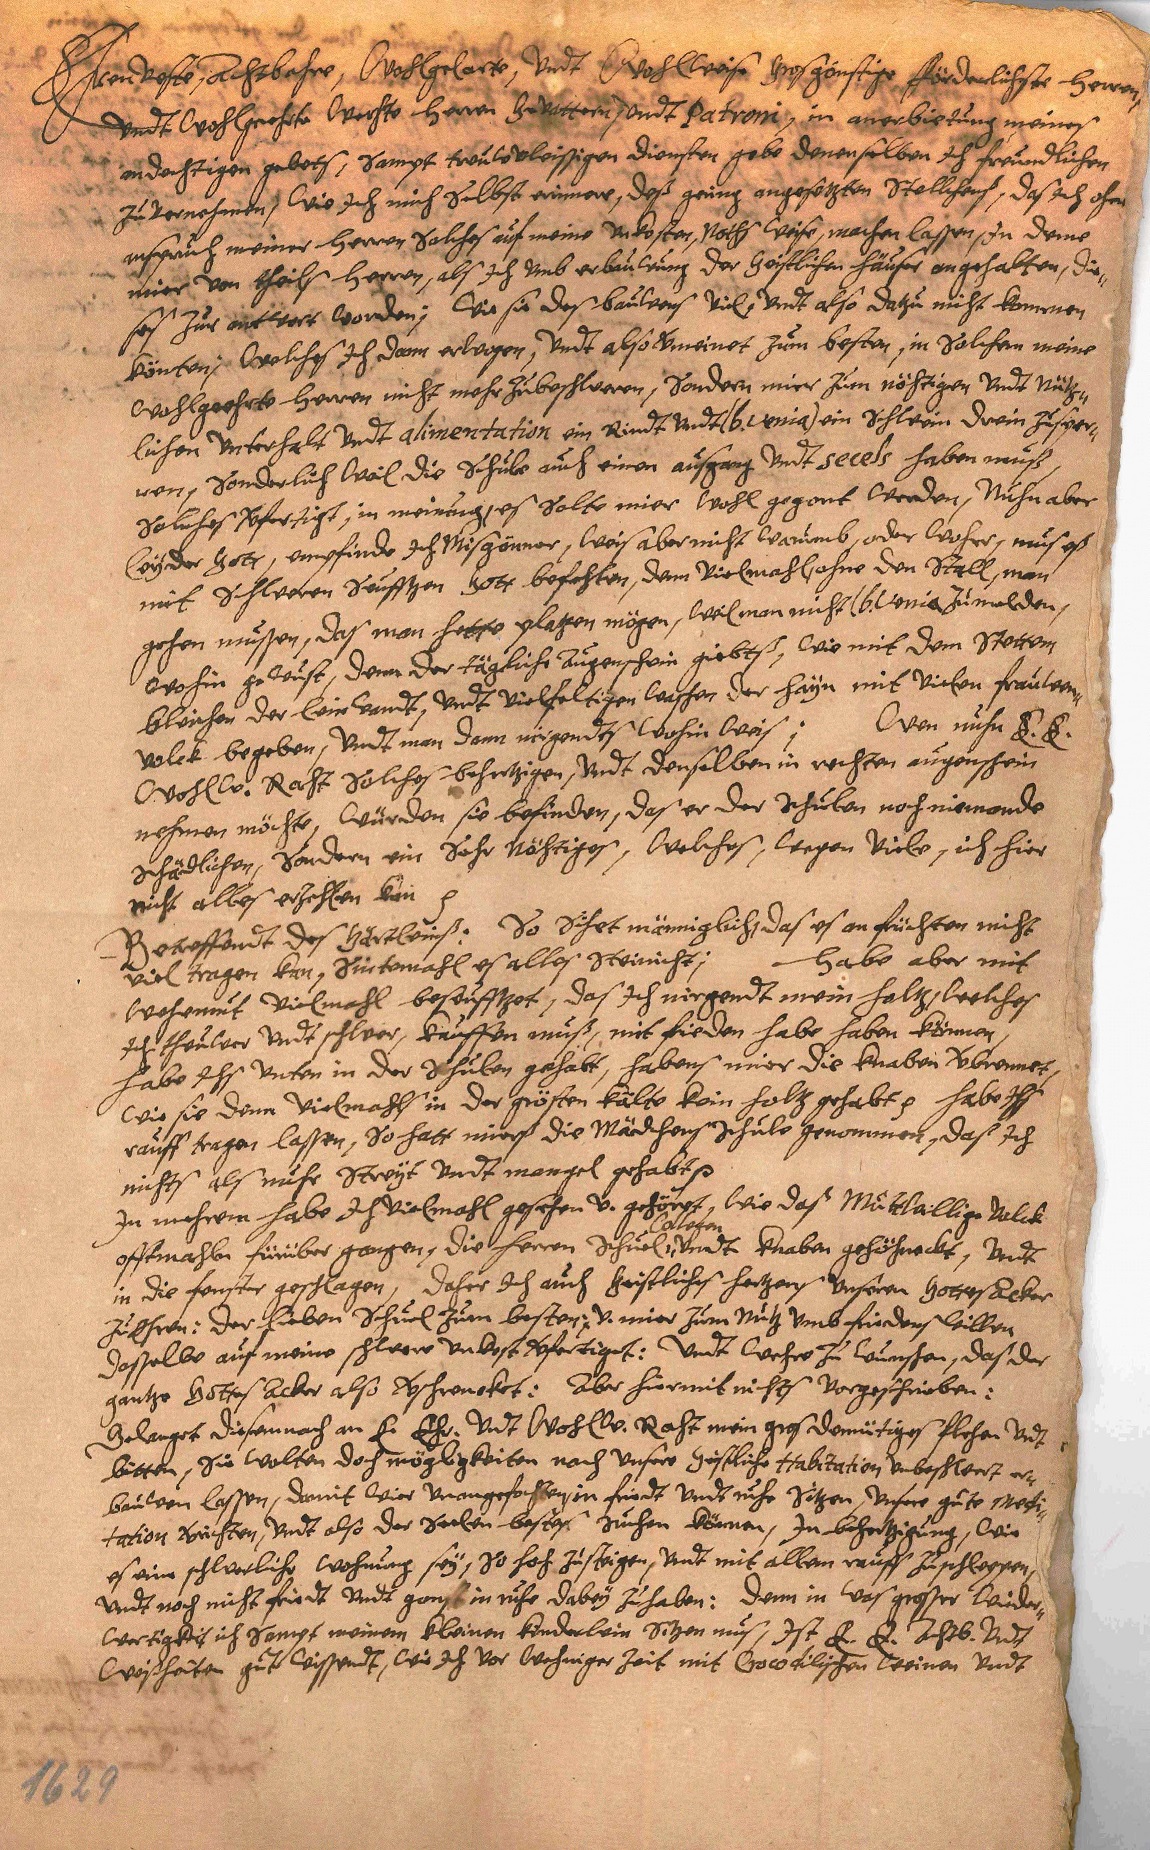 Ehrenveste, Achtbahre, Wohlgelarte, Undt Wohl Weise Grosgönstige förderlichste Herren,
Undt Wohlgeehrte Werthe Herren Gevattern, undt Patroni, in anerbietung meines
andechtigen gebets, Sampt treuwvleissigen diensten gebe denenselben Ich freundlichen
zuVernehmen, Wie Ich mich Selbst erinnere, deß gering angesetzten Stellchens, das Ich ohne
anspruch meiner Herren Solches auf meine Unkosten, Noths Weise, machen lassen, In deme
mier von theils Herren, als Ich Umb erbauwung der Geistlichen häuser angehalten, die-
ses zur antwort Worden; Wie sie des bauwens Viel, Undt also datzu nicht kommen
könten; Welches Ich dann erwogen, Undt also Vermeinet zum besten, in Solchem meine
Wohlgeehrte Herren nicht mehr zubeschweren, Sondern mier zum nöhtigen Undt Nütz-
lichen Unterhalt Undt alimentation ein Rindt Undt (b. venia) ein Schwein drein zusper-
ren, Sonderlich Weil die Schule auch einen ausgang Undt secess haben muß,
Solches Verfertigt, in meinung, es Solte mier Wohl gegont Werden, Nuhn aber
Leyder Gott, empfinde Ich Misgönner, Weis aber nicht Warumb, oder Woher, mus eß
mit Schweren Seufftzen Gott befehlen, dem Vielmahl, ohne den Stall, man
gehen mussen, das man hette platzen mögen, Weil man nicht (b. Venia zumelden,
Wohin gewust, denn der tägliche Augenschein giebts, Wie mit dem Stettem
bleichen der leinwandt, Undt Vielfeltigen Waschen der Hayn mit Vielen frauwen-
volck begeben, Undt man dann nirgendts Wohin Weis; Wen nuhn E. E.
Wohl W. Raht Solches behertzigen, Undt denselben in rechten augenschein
nehmen möchte, Würden sie befinden, das er der Schulen noch niemande
Schädlichen, Sondern ein Sehr Nöhtiges, Welches, Wegen Viele, ich hier
nicht alles erzehlen kan
Betreffendt des Gärtleins: So Sihet männiglich, das es an früchten nicht
viel tragen kan, Sintemahl es alles Steinicht; Habe aber mit
Wehemut Vielmahl beseufftzet, das Ich nirgendt mein holtz, Welches
Ich theuwer Undt schwer, kauffen muß, mit frieden habe haben können,
habe Ichs Unten in der Schulen gehabt, habens mier die knaben Verbrennet,
Wie sie denn Vielmahls in der grösten kälte kein holtz gehabt, habe Ichs
rauff tragen lassen, So hatt miers die Mädchens Schule genommen, daß Ich
nichts als nuhr Streyt Undt mangel gehabt
In mehrem habe Ich Vielmahl gesehen v. gehöret, Wie daß Mutwillige Volck
offtmahls fürüber gangen, die Herren Schuel Collegen, Undt knaben gehöhneckt, Undt
in die fenster geschlagen, Daher Ich auch Geistliches hertzens Unseren Gottes Acker
zu Ehren: der lieben Schuel zum besten, v. mier zum Nutz Umb friedens Willen
dasselbe auf meine schwere Unkost Verfertiget: Undt Wehre zu Wunschen, das der
gantze Gottes Acker also Verschrencket: Aber hiermit nichts vorgeschrieben:
Gelanget diesemnach an E. Ehr. Undt Wohl W. Raht mein gros demütiges flehen Undt
bitten, Sie Wolten doch mögligkeiten nach Unsere Geistliche Habitation Unbeschwert er-
bauwen lassen, damit Wier Unangefochten, in friedt Undt ruhe Sitzen, Unsere gute Medi-
tation Verrichten, Undt also der Seelen bestes Suchen können, In behertzigung, Wie
es eine schwerliche Wohnung sey, So hoch zusteigen, Undt mit allem rauff zuschleppen,
Undt noch nicht friedt Undt gonst in ruhe dabey zuhaben: Denn in Was grosser Wieder-
wertigkeit ich Sampt meinem kleinen kinderlein Sitzen mus, Ist E. E. Achtb. Undt
Weißheiten gut Wissendt, Wie Ich vor Wehniger Zeit mit Crocodilischen Weinen Undt
1629